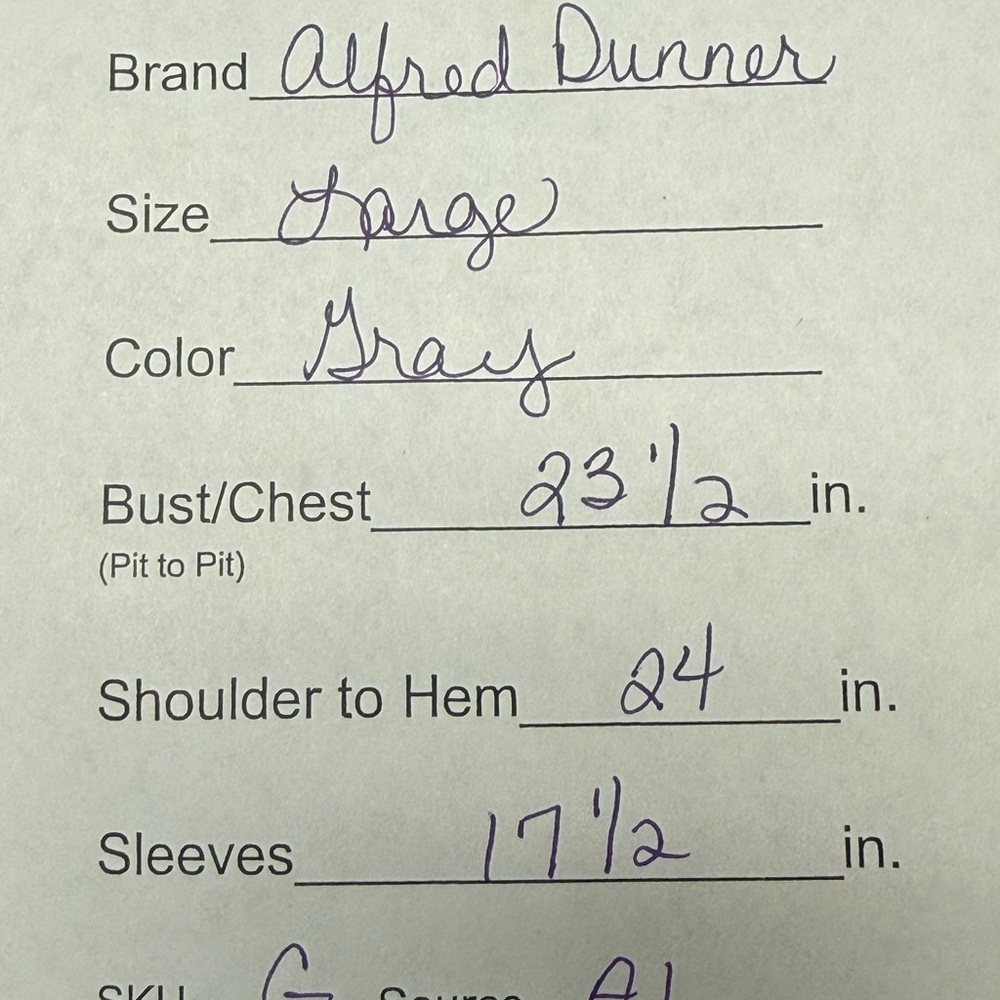 Brand Alfred Dunner
Size Large
Color Gray
Bust/Chest 23 1/2 in.
(Pit to Pit)
Shoulder to Hem 24 in.
Sleeves 17 1/2 in.
SKU G Source